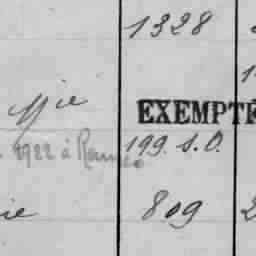 1328
EXEMPTÉ
1922 à Rennes 199. S.O.
809 2